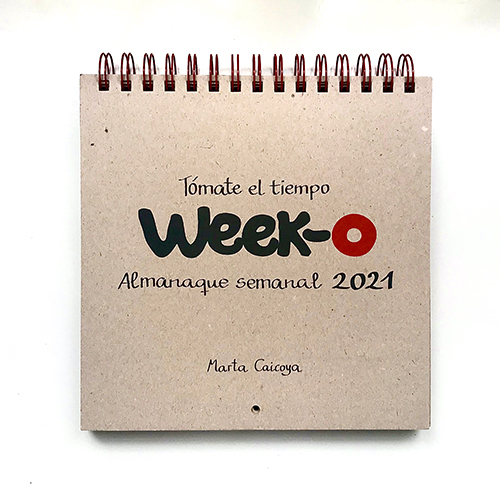 Tómate el tiempo
Week-o
Almanaque semanal 2021
Marta Caicoya